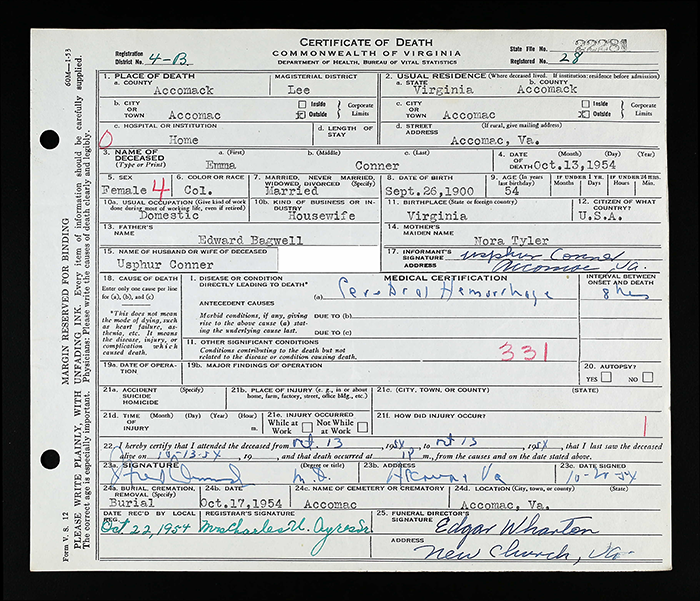 CERTIFICATE OF DEATH
COMMONWEALTH OF VIRGINIA
DEPARTMENT OF HEALTH, BUREAU OF VITAL STATISTICS
Registration District No. 4-B
State File No. 22281
Registered No. 28
60M—1-53
MARGIN RESERVED FOR BINDING
PLEASE WRITE PLAINLY, WITH UNFADING INK. Every item of information should be carefully supplied.
The correct age is especially important. Physicians: Please write the causes of death clearly and legibly.
Form V. S. 12
1. PLACE OF DEATH
a. COUNTY Accomack
MAGISTERIAL DISTRICT Lee
2. USUAL RESIDENCE (Where deceased lived. If institution: residence before admission)
a. STATE Virginia
b. COUNTY Accomack
b. CITY OR TOWN Accomac
Inside Outside Corporate Limits
c. CITY OR TOWN Accomac
Inside Outside Corporate Limits
c. HOSPITAL OR INSTITUTION Home
d. LENGTH OF STAY
d. STREET ADDRESS (If rural, give mailing address) Accomac, Va.
3. NAME OF DECEASED (Type or Print) a. (First) Emma b. (Middle) c. (Last) Conner
4. DATE OF DEATH (Month) (Day) (Year) Oct.13,1954
5. SEX Female 4
6. COLOR OR RACE Col.
7. MARRIED, NEVER MARRIED, WIDOWED, DIVORCED (Specify) Married
8. DATE OF BIRTH Sept.26,1900
9. AGE (In years last birthday) 54
IF UNDER 1 YR. Months Days
IF UNDER 24 HRS. Hours Min.
10a. USUAL OCCUPATION (Give kind of work done during most of working life, even if retired) Domestic
10b. KIND OF BUSINESS OR INDUSTRY Housewife
11. BIRTHPLACE (State or foreign country) Virginia
12. CITIZEN OF WHAT COUNTRY? U.S.A.
13. FATHER'S NAME Edward Bagwell
14. MOTHER'S MAIDEN NAME Nora Tyler
15. NAME OF HUSBAND OR WIFE OF DECEASED Usphur Conner
17. INFORMANT'S SIGNATURE Usphur Conner
ADDRESS Accomac, Va.
18. CAUSE OF DEATH
Enter only one cause per line for (a), (b), and (c)
*This does not mean the mode of dying, such as heart failure, asthenia, etc. It means the disease, injury, or complication which caused death.
MEDICAL CERTIFICATION
INTERVAL BETWEEN ONSET AND DEATH
I. DISEASE OR CONDITION DIRECTLY LEADING TO DEATH* (a) Cerebral Hemorrhage 8 hrs
ANTECEDENT CAUSES
Morbid conditions, if any, giving rise to the above cause (a) stating the underlying cause last.
DUE TO (b)
DUE TO (c)
11. OTHER SIGNIFICANT CONDITIONS
Conditions contributing to the death but not related to the disease or condition causing death.
331
19a. DATE OF OPERATION
19b. MAJOR FINDINGS OF OPERATION
20. AUTOPSY? YES NO
21a. ACCIDENT SUICIDE HOMICIDE (Specify)
21b. PLACE OF INJURY (e. g., in or about home, farm, factory, street, office bldg., etc.)
21c. (CITY, TOWN, OR COUNTY) (STATE)
21d. TIME OF INJURY (Month) (Day) (Year) (Hour) m.
21e. INJURY OCCURRED While at Work Not While at Work
21f. HOW DID INJURY OCCUR?
1
22. I hereby certify that I attended the deceased from Oct. 13 1954 to Oct 13 1954, that I last saw the deceased
alive on 10-13-54 19 , and that death occurred at m., from the causes and on the date stated above.
23a. SIGNATURE (Degree or title) M.D.
23b. ADDRESS Accomac Va
23c. DATE SIGNED
24a. BURIAL, CREMATION, REMOVAL (Specify) Burial
24b. DATE Oct.17,1954
24c. NAME OF CEMETERY OR CREMATORY Accomac
24d. LOCATION (City, town, or county) (State) Accomac, Va.
DATE REC'D BY LOCAL REG. Oct 22, 1954
REGISTRAR'S SIGNATURE Mrs Charles W. Ayres Sr.
25. FUNERAL DIRECTOR'S SIGNATURE Edgar Wharton
ADDRESS New Church, Va.